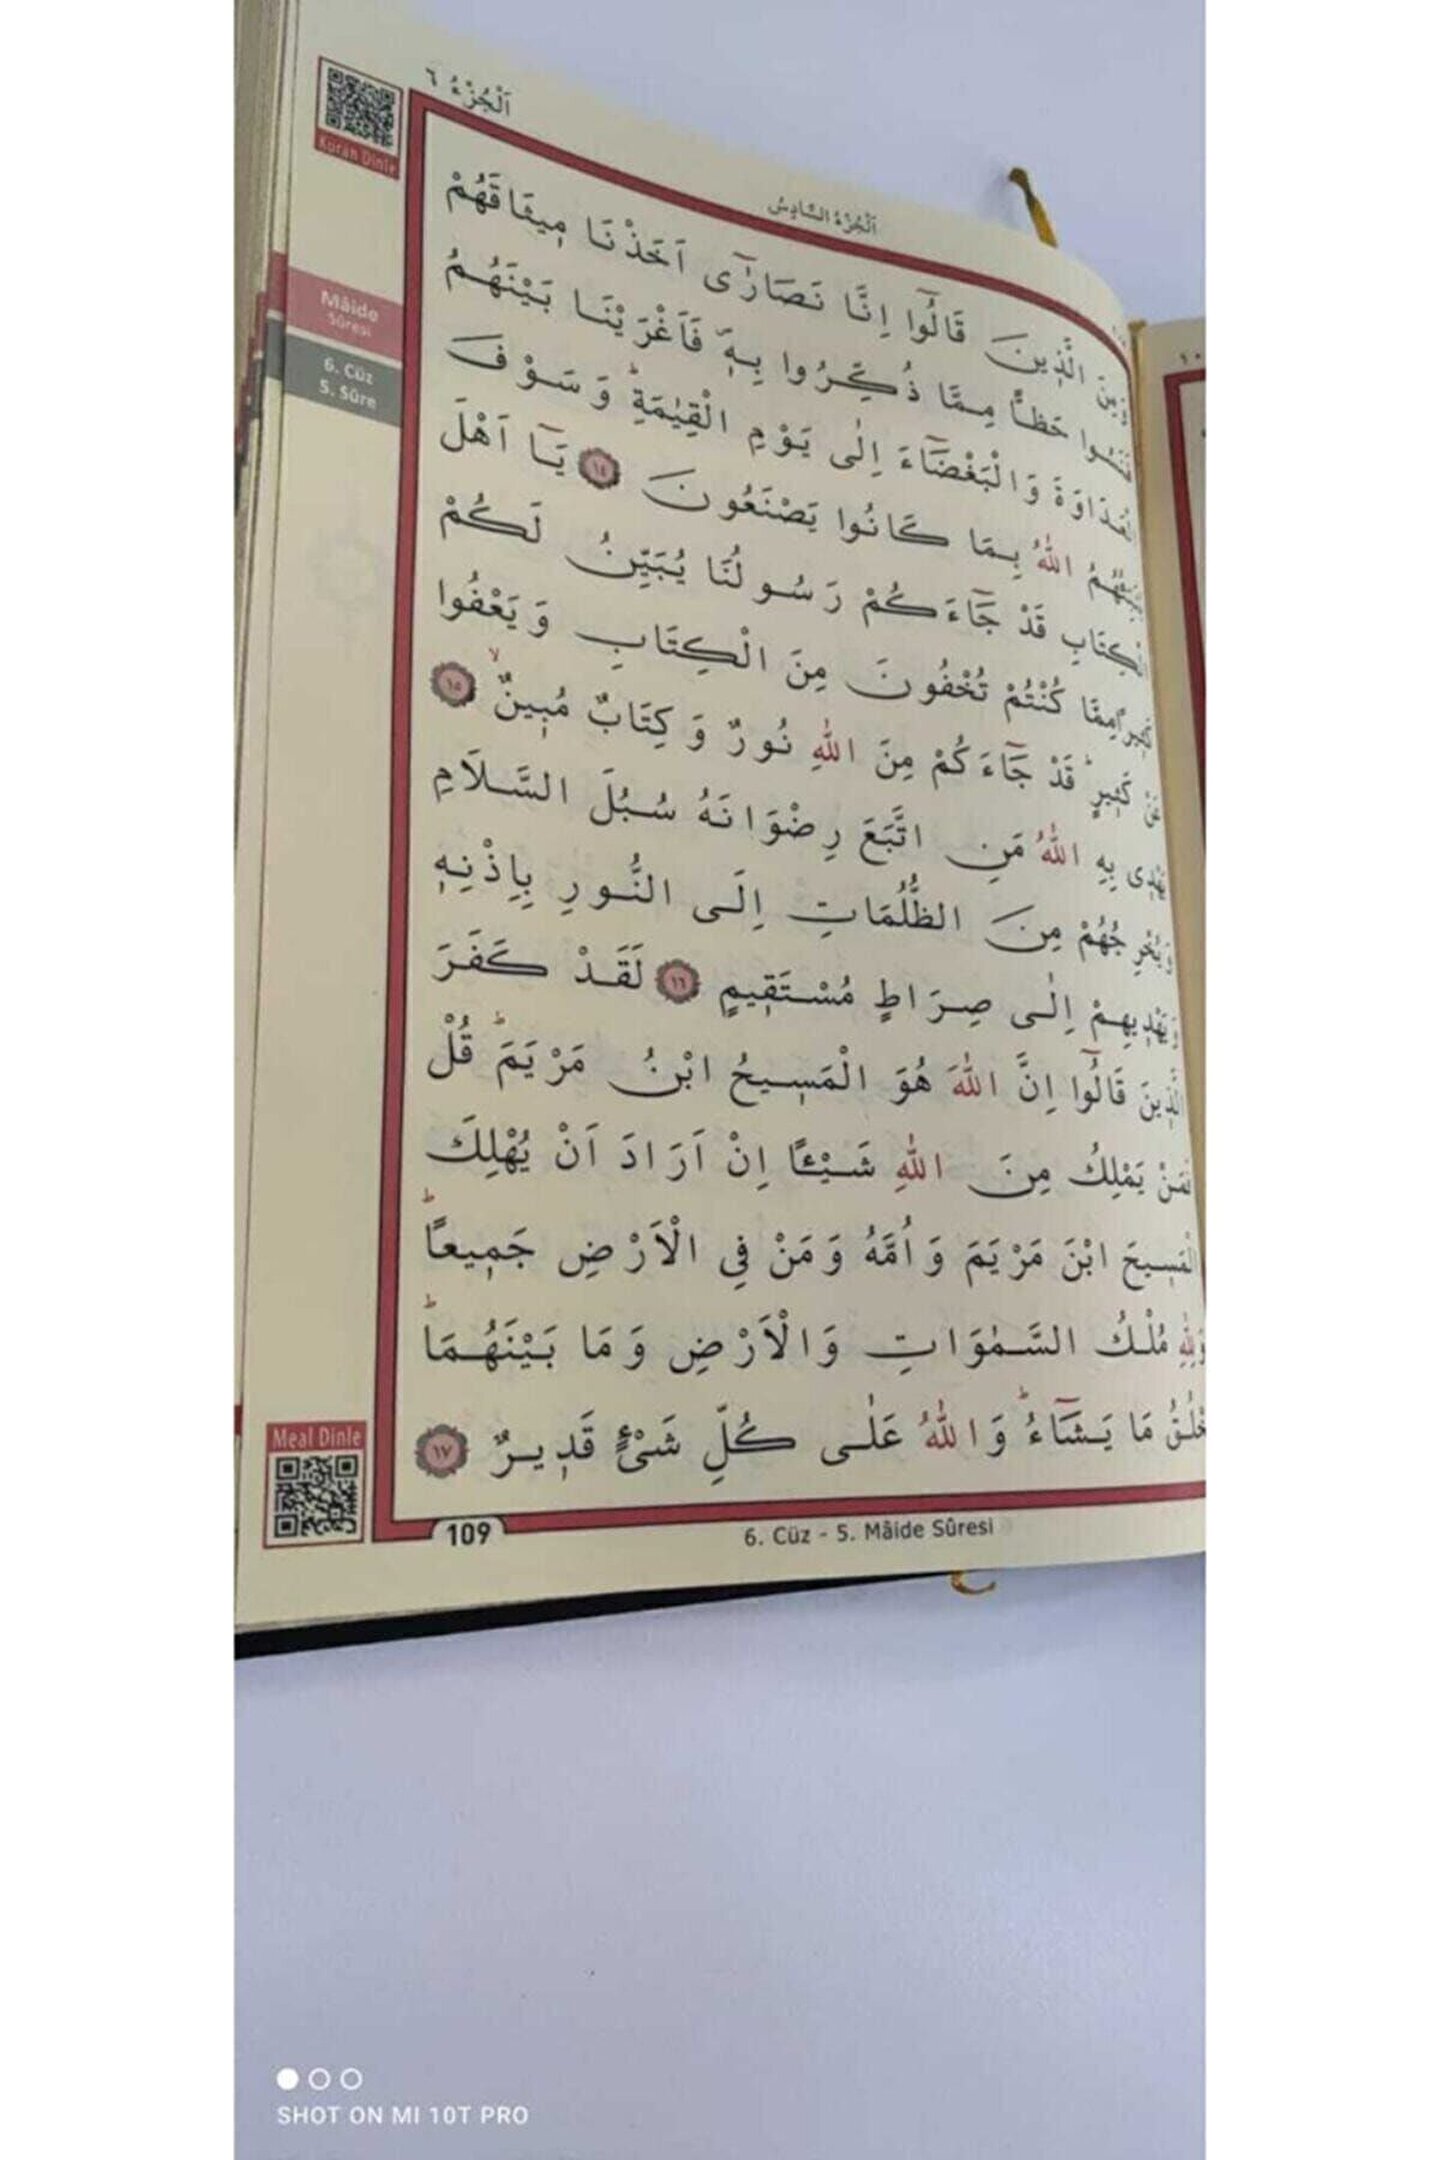 اَلْجُزْءُ ٦
Kuran Dinle
اَلْجُزْءُ السَّادِسُ
Mâide
Sûresi
6. Cüz
5. Sûre
الَّذ۪ينَ قَالُٓوا اِنَّا نَصَارٰٓى اَخَذْنَا م۪يثَاقَهُمْ
حَظًّا مِمَّا ذُكِّرُوا بِه۪ۖ فَاَغْرَيْنَا بَيْنَهُمُ
وَالْبَغْضَٓاءَ اِلٰى يَوْمِ الْقِيٰمَةِۜ وَسَوْفَ
اللّٰهُ بِمَا كَانُوا يَصْنَعُونَ ١٤ يَٓا اَهْلَ
الْكِتَابِ قَدْ جَٓاءَكُمْ رَسُولُنَا يُبَيِّنُ لَكُمْ
مِمَّا كُنْتُمْ تُخْفُونَ مِنَ الْكِتَابِ وَيَعْفُوا
عَنْ كَث۪يرٍۜ قَدْ جَٓاءَكُمْ مِنَ اللّٰهِ نُورٌ وَكِتَابٌ مُب۪ينٌۙ ١٥
يَهْد۪ي بِهِ اللّٰهُ مَنِ اتَّبَعَ رِضْوَانَهُ سُبُلَ السَّلَامِ
وَيُخْرِجُهُمْ مِنَ الظُّلُمَاتِ اِلَى النُّورِ بِاِذْنِه۪
وَيَهْد۪يهِمْ اِلٰى صِرَاطٍ مُسْتَق۪يمٍ ١٦ لَقَدْ كَفَرَ
الَّذ۪ينَ قَالُٓوا اِنَّ اللّٰهَ هُوَ الْمَس۪يحُ ابْنُ مَرْيَمَۜ قُلْ
فَمَنْ يَمْلِكُ مِنَ اللّٰهِ شَيْـًٔا اِنْ اَرَادَ اَنْ يُهْلِكَ
الْمَس۪يحَ ابْنَ مَرْيَمَ وَاُمَّهُ وَمَنْ فِي الْاَرْضِ جَم۪يعًاۜ
وَلِلّٰهِ مُلْكُ السَّمٰوَاتِ وَالْاَرْضِ وَمَا بَيْنَهُمَاۜ
يَخْلُقُ مَا يَشَٓاءُۜ وَاللّٰهُ عَلٰى كُلِّ شَيْءٍ قَد۪يرٌ ١٧
Meal Dinle
109
6. Cüz - 5. Mâide Sûresi
SHOT ON MI 10T PRO